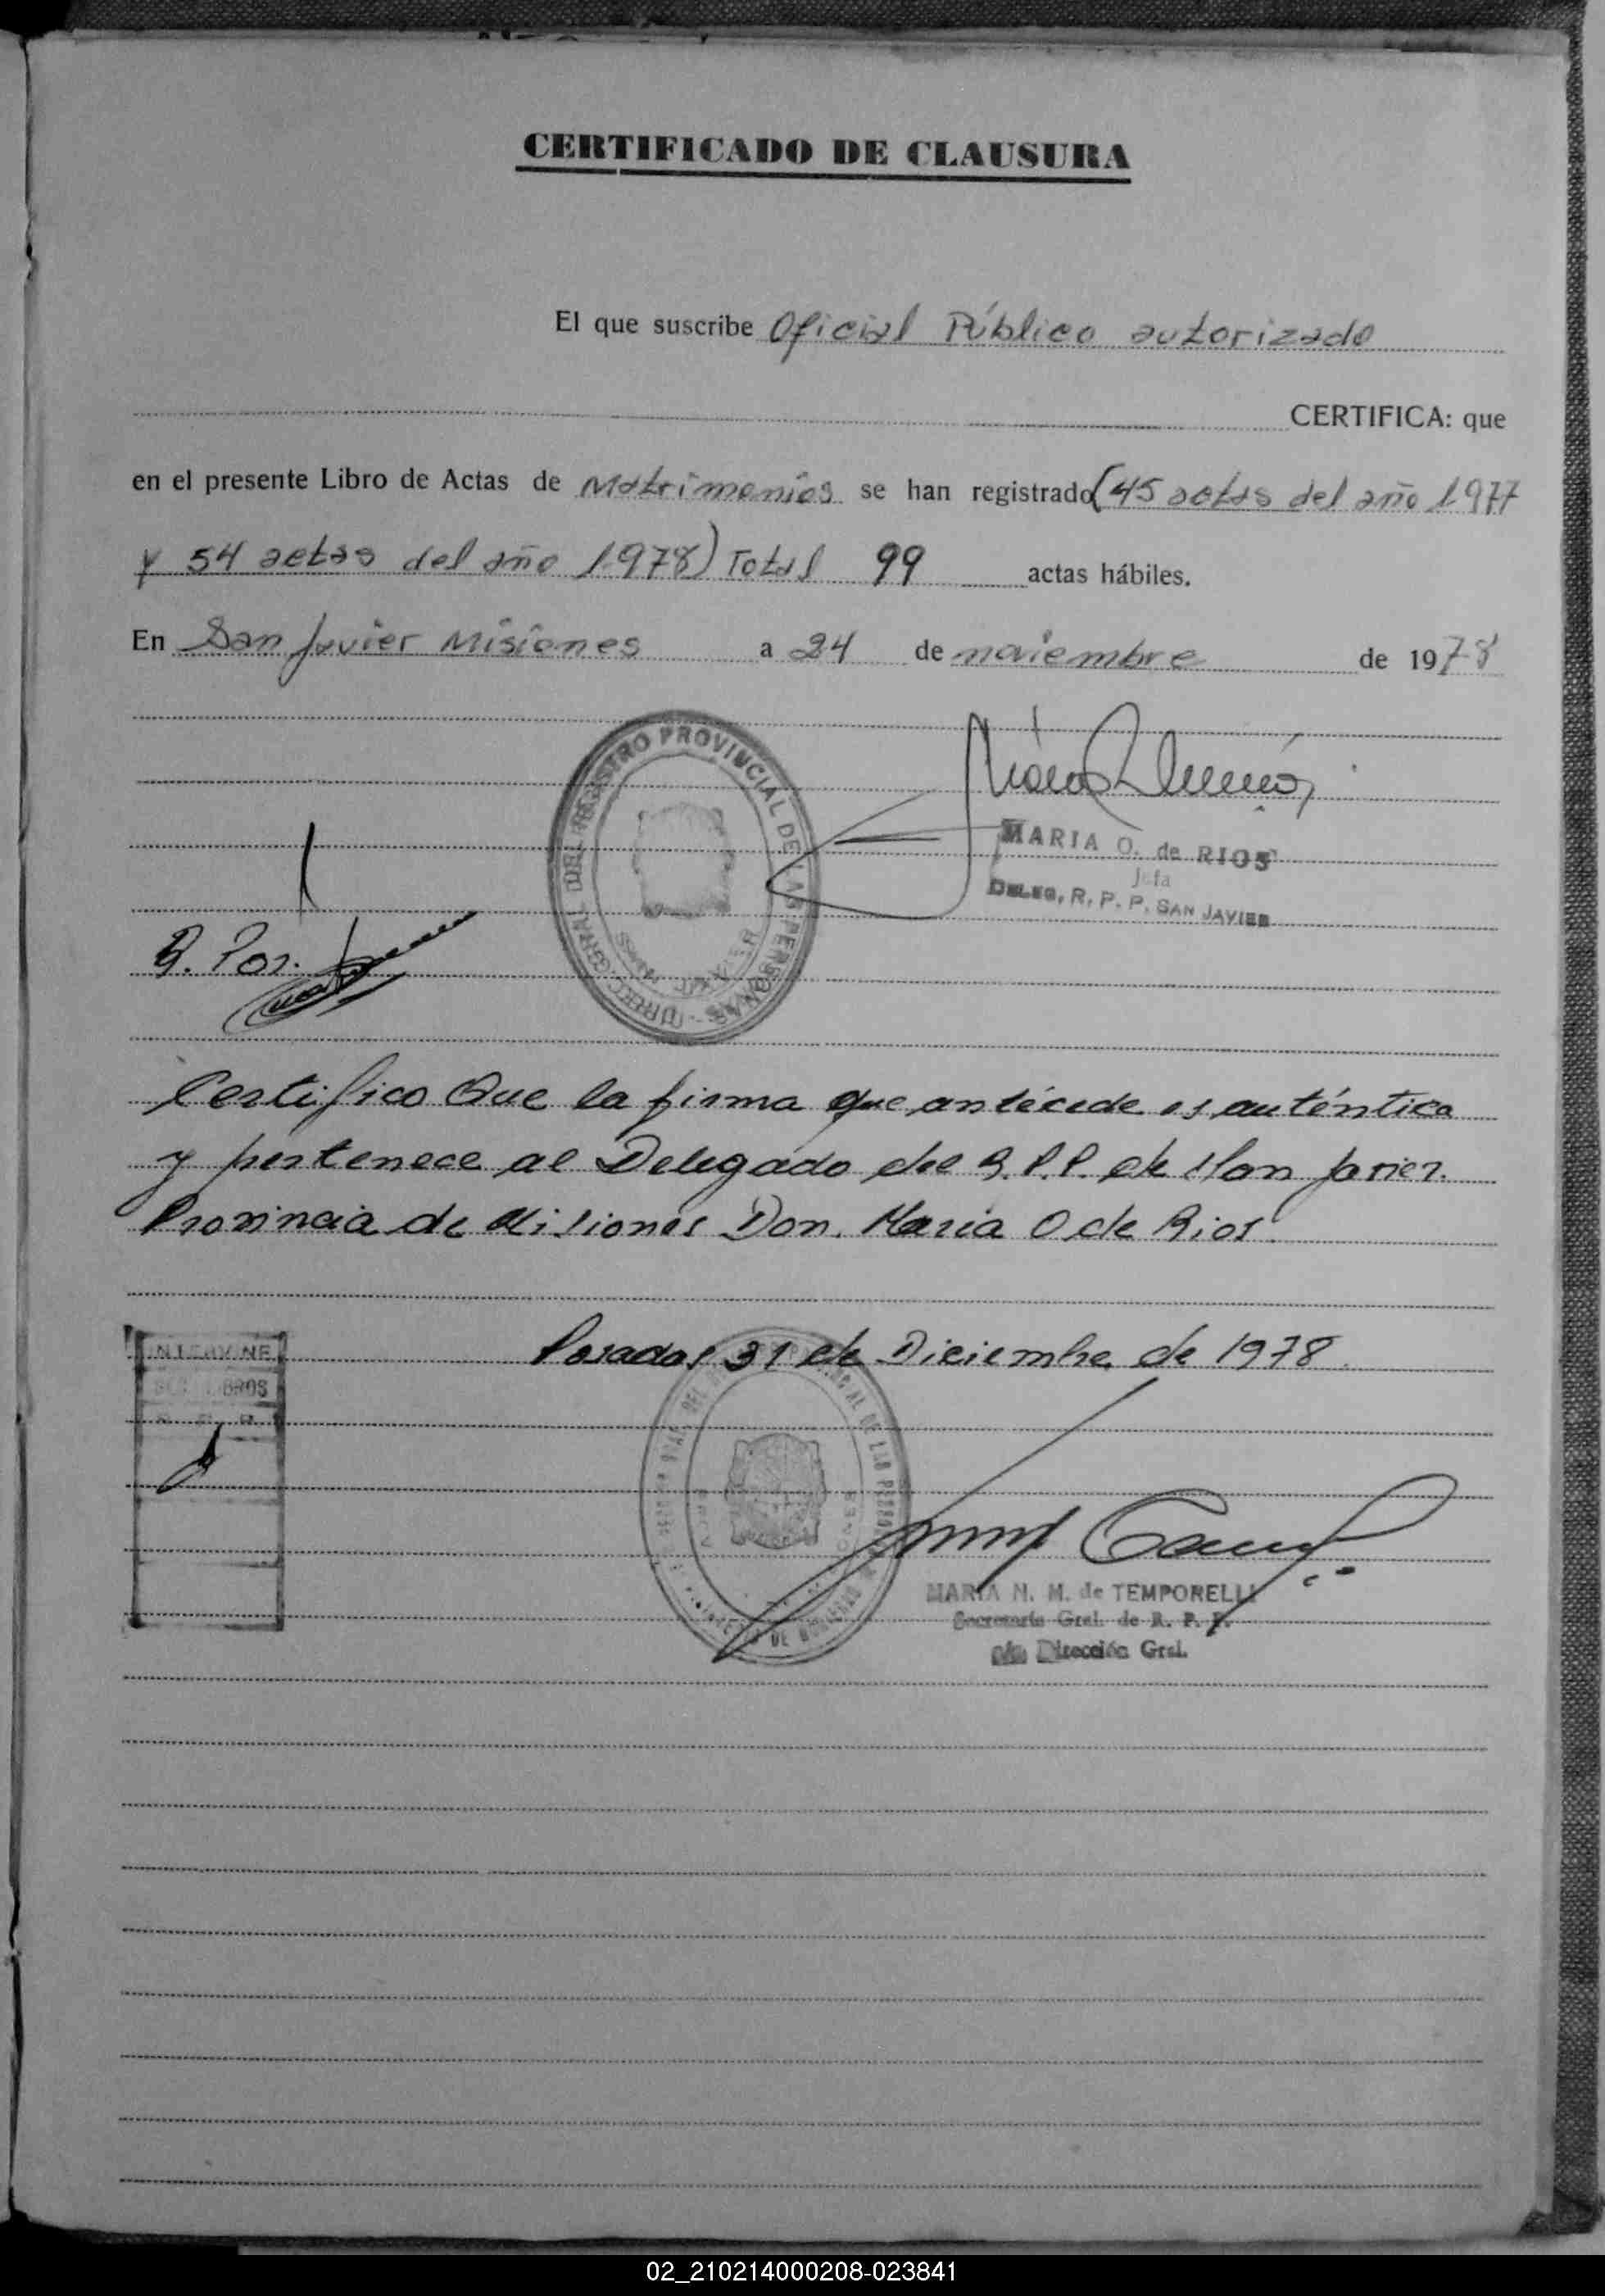 CERTIFICADO DE CLAUSURA
El que suscribe Oficial Público autorizado
CERTIFICA: que
en el presente Libro de Actas de Matrimonios se han registrado (45 actas del año 1977
y 54 actas del año 1978) Total 99 actas hábiles.
En San Javier Misiones a 24 de noviembre de 1978
REGISTRO PROVINCIAL DE LAS PERSONAS
MARIA O. de RIOS
Jefa
DELEG, R. P. P. SAN JAVIER
Certifico Que la firma que antécede es auténtica
y pertenece al Delegado del R.P.P. de San Javier.
Provincia de Misiones Don. Maria O de Rios.
Posadas 31 de Diciembre de 1978.
INTERVINE
LIBROS
MARIA N. M. de TEMPORELLI
Secretaria Gral. de R. P. P.
Dirección Gral.
02_210214000208-023841